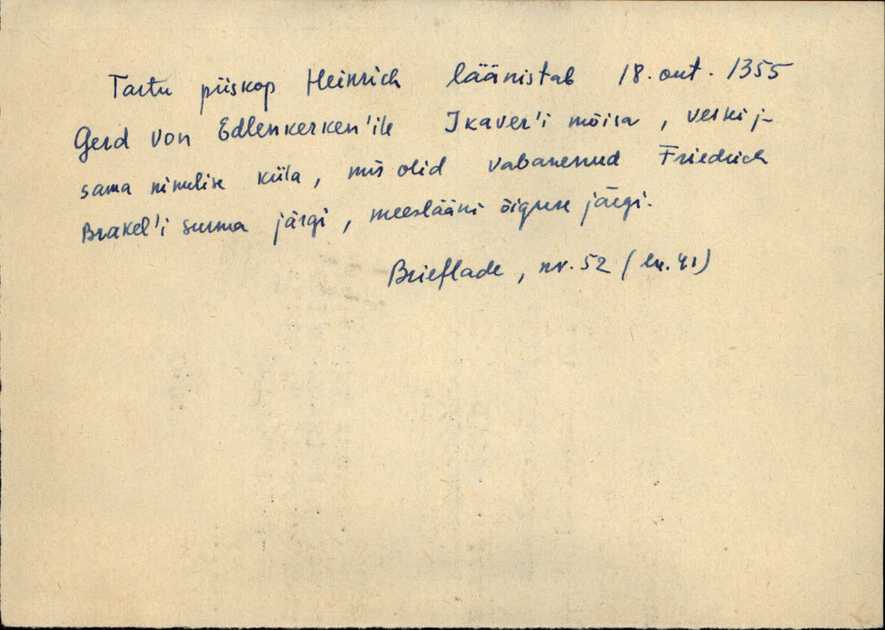 Tartu piiskop Heinrich läänistab 18. okt. 1355
Gerd von Edlenkerken'ile Ikaver'i mõisa, veski j-
sama nimelise küla, mis olid vabanenud Friedrich
Brakel'i surma järgi, meeslääni õiguse järgi.
Brieflade, nr. 52 (lk. 41)